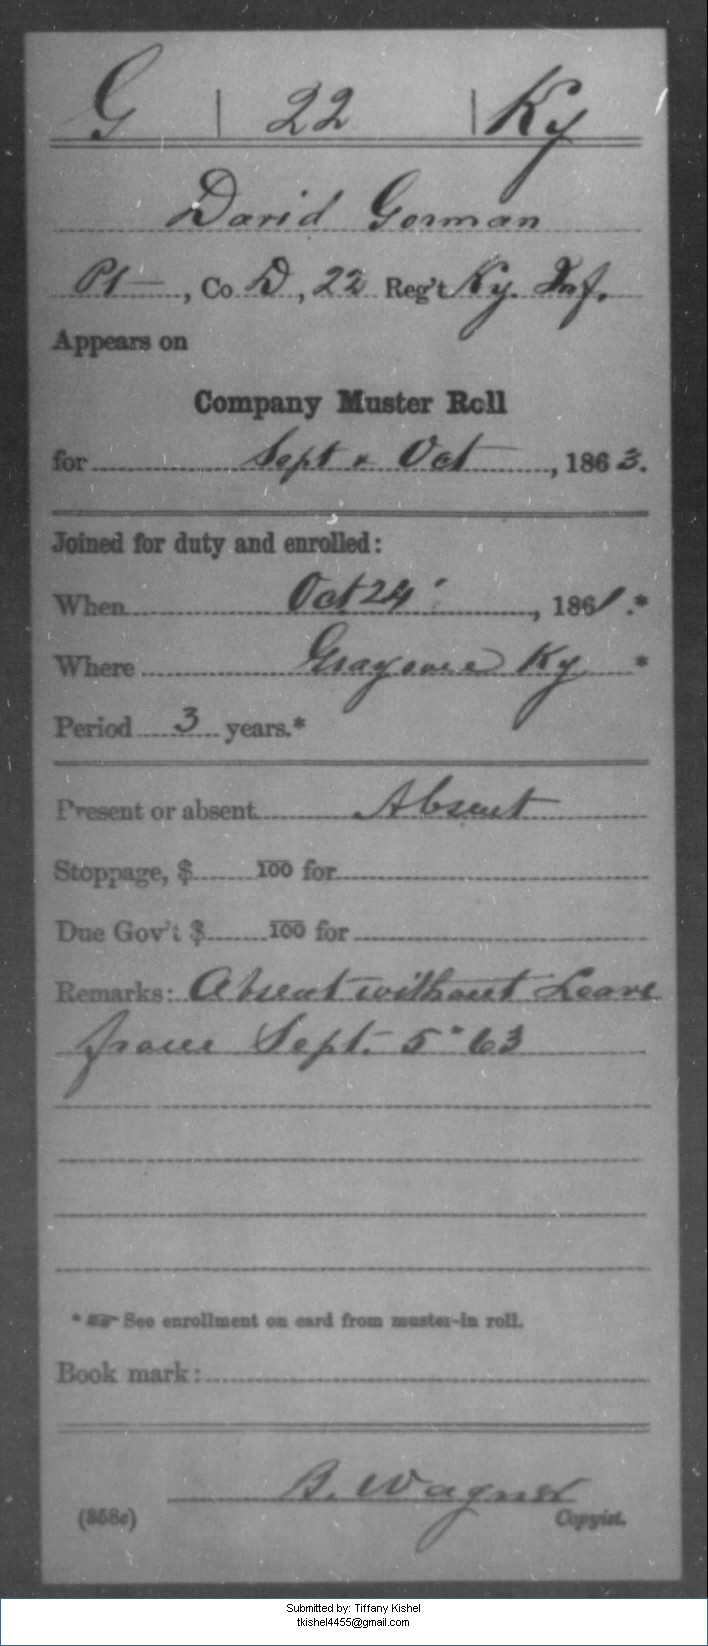 G | 22 | Ky
David Gorman
Pt, Co D, 22 Reg't Ky. Inf.
Appears on
Company Muster Roll
for Sept & Oct, 1863.
Joined for duty and enrolled:
When Oct 24, 1861.*
Where Grayson Ky *
Period 3 years.*
Present or absent Absent
Stoppage, $ 100 for
Due Gov't $ 100 for
Remarks: Absent without Leave
from Sept. 5" 63
* ☞ See enrollment on card from muster-in roll.
Book mark:
B. Wagner
(358c) Copyist.
Submitted by: Tiffany Kishel
tkishel4455@gmail.com